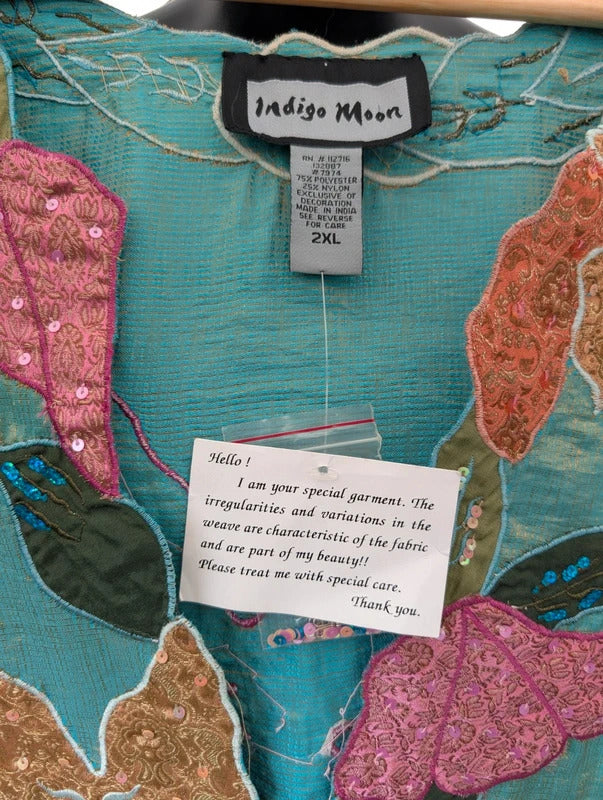 Indigo Moon
RN # 112716
132087
# 7974
75% POLYESTER
25% NYLON
EXCLUSIVE OF
DECORATION
MADE IN INDIA
SEE REVERSE
FOR CARE
2XL
Hello !
I am your special garment. The
irregularities and variations in the
weave are characteristic of the fabric
and are part of my beauty!!
Please treat me with special care.
Thank you.